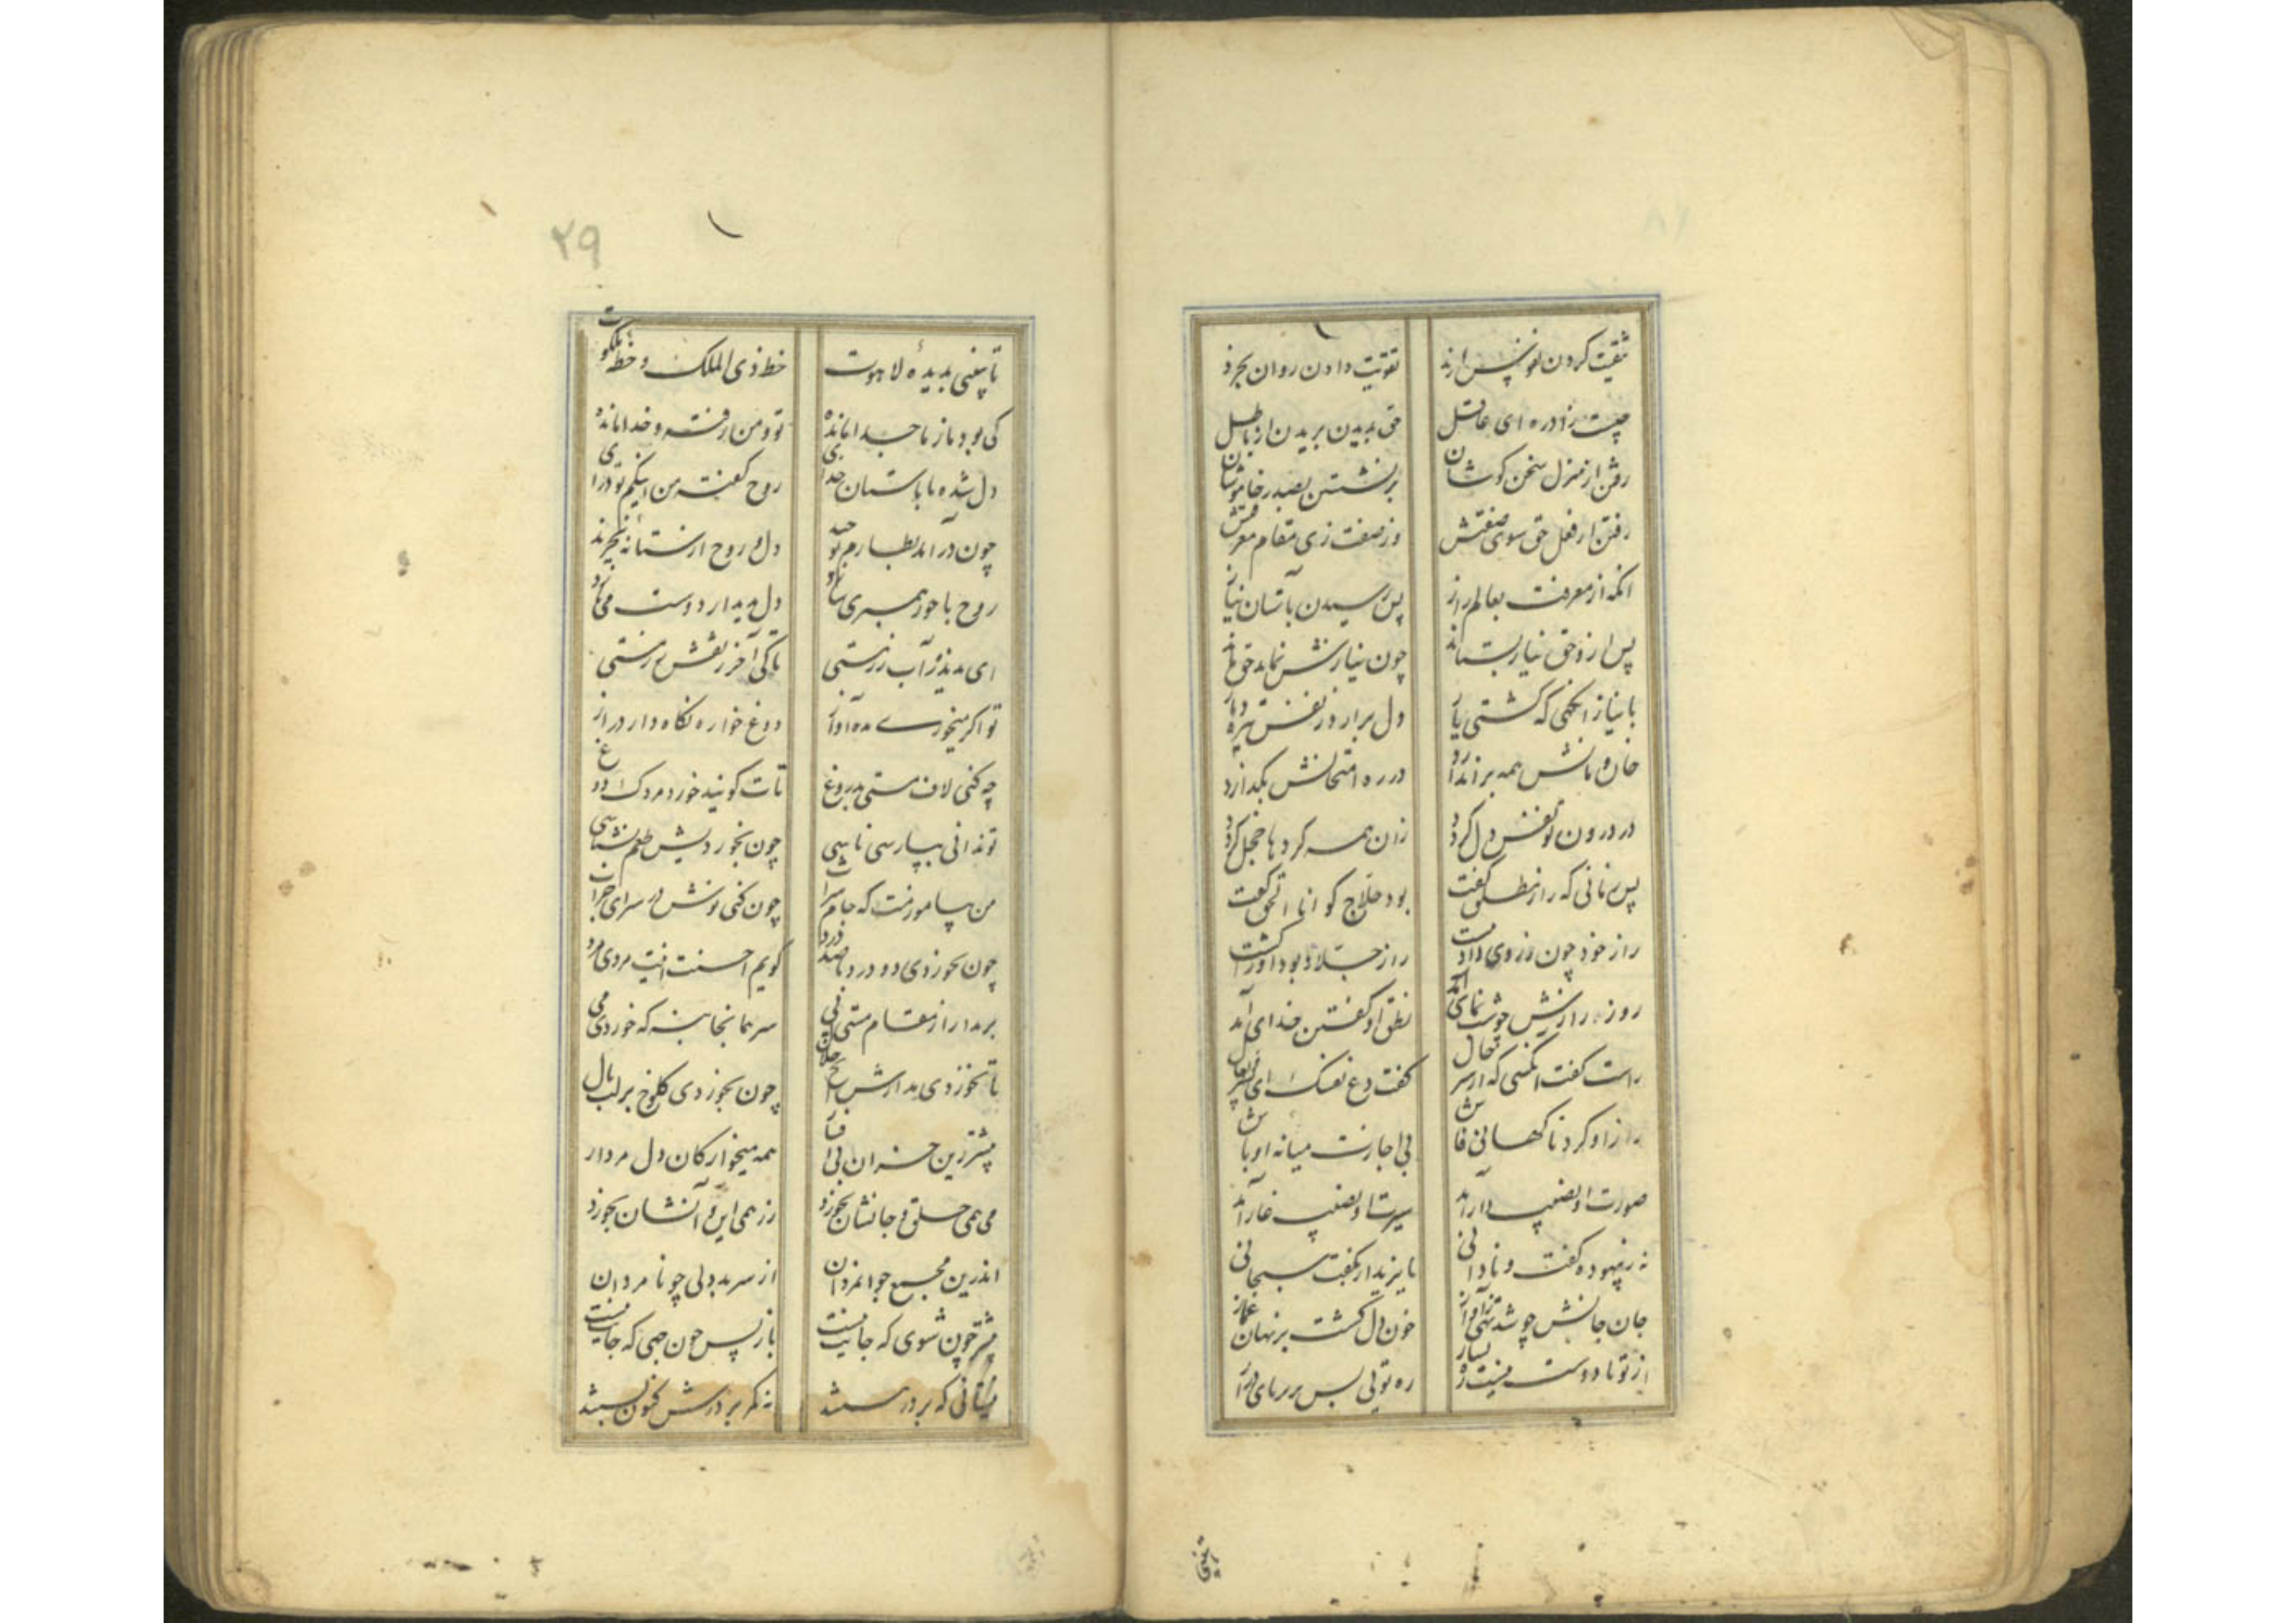 تقیت کردن نفس از بد تقویت دادن روان بخرد
چیست زاد ره ای عاقل حق بدیدن بریدن از باطل
رفتن از منزل سخن کوشان برنشستن بصدر خاموشان
رفتن از فعل حق سوی صفتش وز صفت زی مقام معرفتش
انکه از معرفت بعالم راز پس رسیدن باستان نیاز
پس ازو حق نیاز بستاند چون نیازش نماند حق ماند
با نیاز انکهی که کشتی یار دل برار وز نفس تیره دمار
خان و مانش همه براندازد در ره امتحانش بکدازد
در درون تو نفس دل کردد زان همه کردها خجل کردد
پس زبانی که راز مطلق کفت بود حلاج کو انا الحق کفت
راز خود چون ز روی داد بپشت راز جلاد بود اورا کشت
روز رازش چو شب نمای آمد نطق او کفتن خدای آمد
راست کفت انکسی که از سر حال کفت دع نفسک ای پسر تعال
راز او کرد ناکهانی فاش بی اجازت میانه اوباش
صورت او نصیب دار آمد سیرت او نصیب غار آمد
نه ز بیهوده کفت و نادانی بایزید ار بکفت سبحانی
جان جانش چو شد تهی ز آواز خون دل کشت بر نهان غماز
از تو تا دوست نیست ره بسیار ره تویی پس بزیر پای درآر
۲۹
تا ببینی بدیده لاهوت خط ذی الملک و خط ملکوت
کی بود ماز ما جدا مانده تو و من رفته و خدا مانده
دل شده با باستان خدای روح کفته من اینکم تو درای
چون درآمد بطارم توحید دل و روح از ستانه تجرید
روح با حور همبری سازد دل بدیدار دوست می نازد
ای ندیده ز آب رز مستی تا کی آخر ز نقش رز مستی
تو اکر میخوری مده آواز دوغ خواره نکاه دارد راز
چه کنی لاف مستی بدروغ تات کویند خورد مردک دوغ
تو ندانی بپارسی ناسی چون بخوردیش طعم بشناسی
من بیاموزمت که جام شراب چون کنی نوش در سرای خراب
چون بخوردی دو درد با صد درد کویم احسنت اینت مردی مرد
برمدار از مقام مستی پی سر همانجا بنه که خوردی می
تا نخوردی مدارش هیچ حلال چون بخوردی کلوخ بر لب مال
بیشتر زین خران بی افسار همه میخوارکان دل مردار
می همی حلق و جانشان بخورد رز همی این و آنشان بخورد
اندرین مجمع جوانمردان از سر بددلی چو نامردان
پیشتر چون شوی که جایت نیست باز پس چون جهی که پایت نیست
نه کمر بر درش کنون بستند